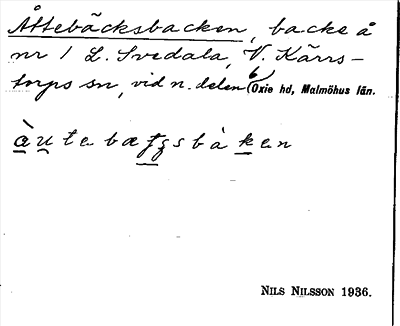 Åttebäcksbacken, backe å
nr 1 L. Svedala, V. Kärrs-
torps sn, vid n. delen (Oxie hd, Malmöhus län.
àutebæʃʒsbàken
NILS NILSSON 1936.